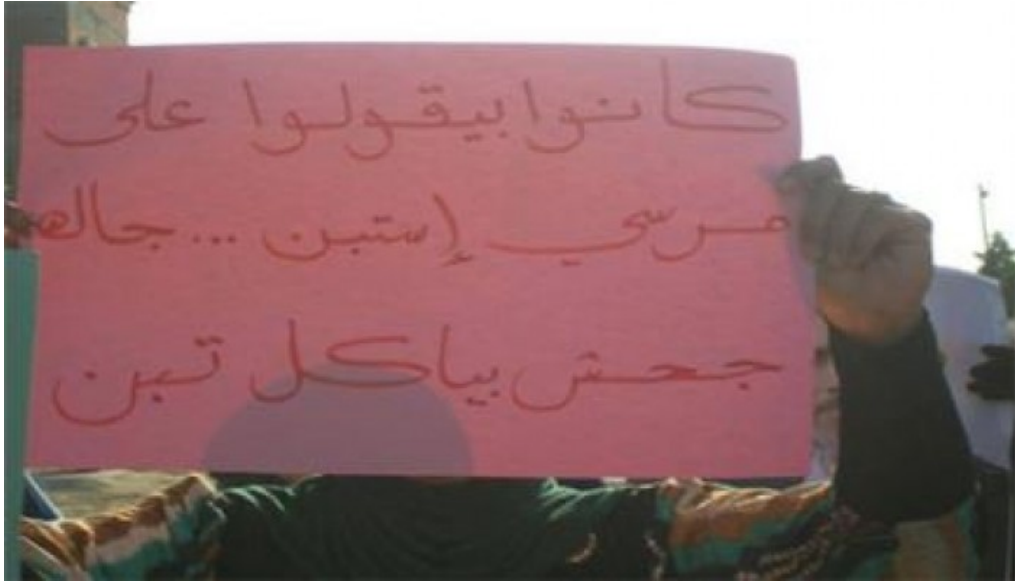 كانوا بيقولوا على
مرسي إستبن ... جالهم
جحش بياكل تبن